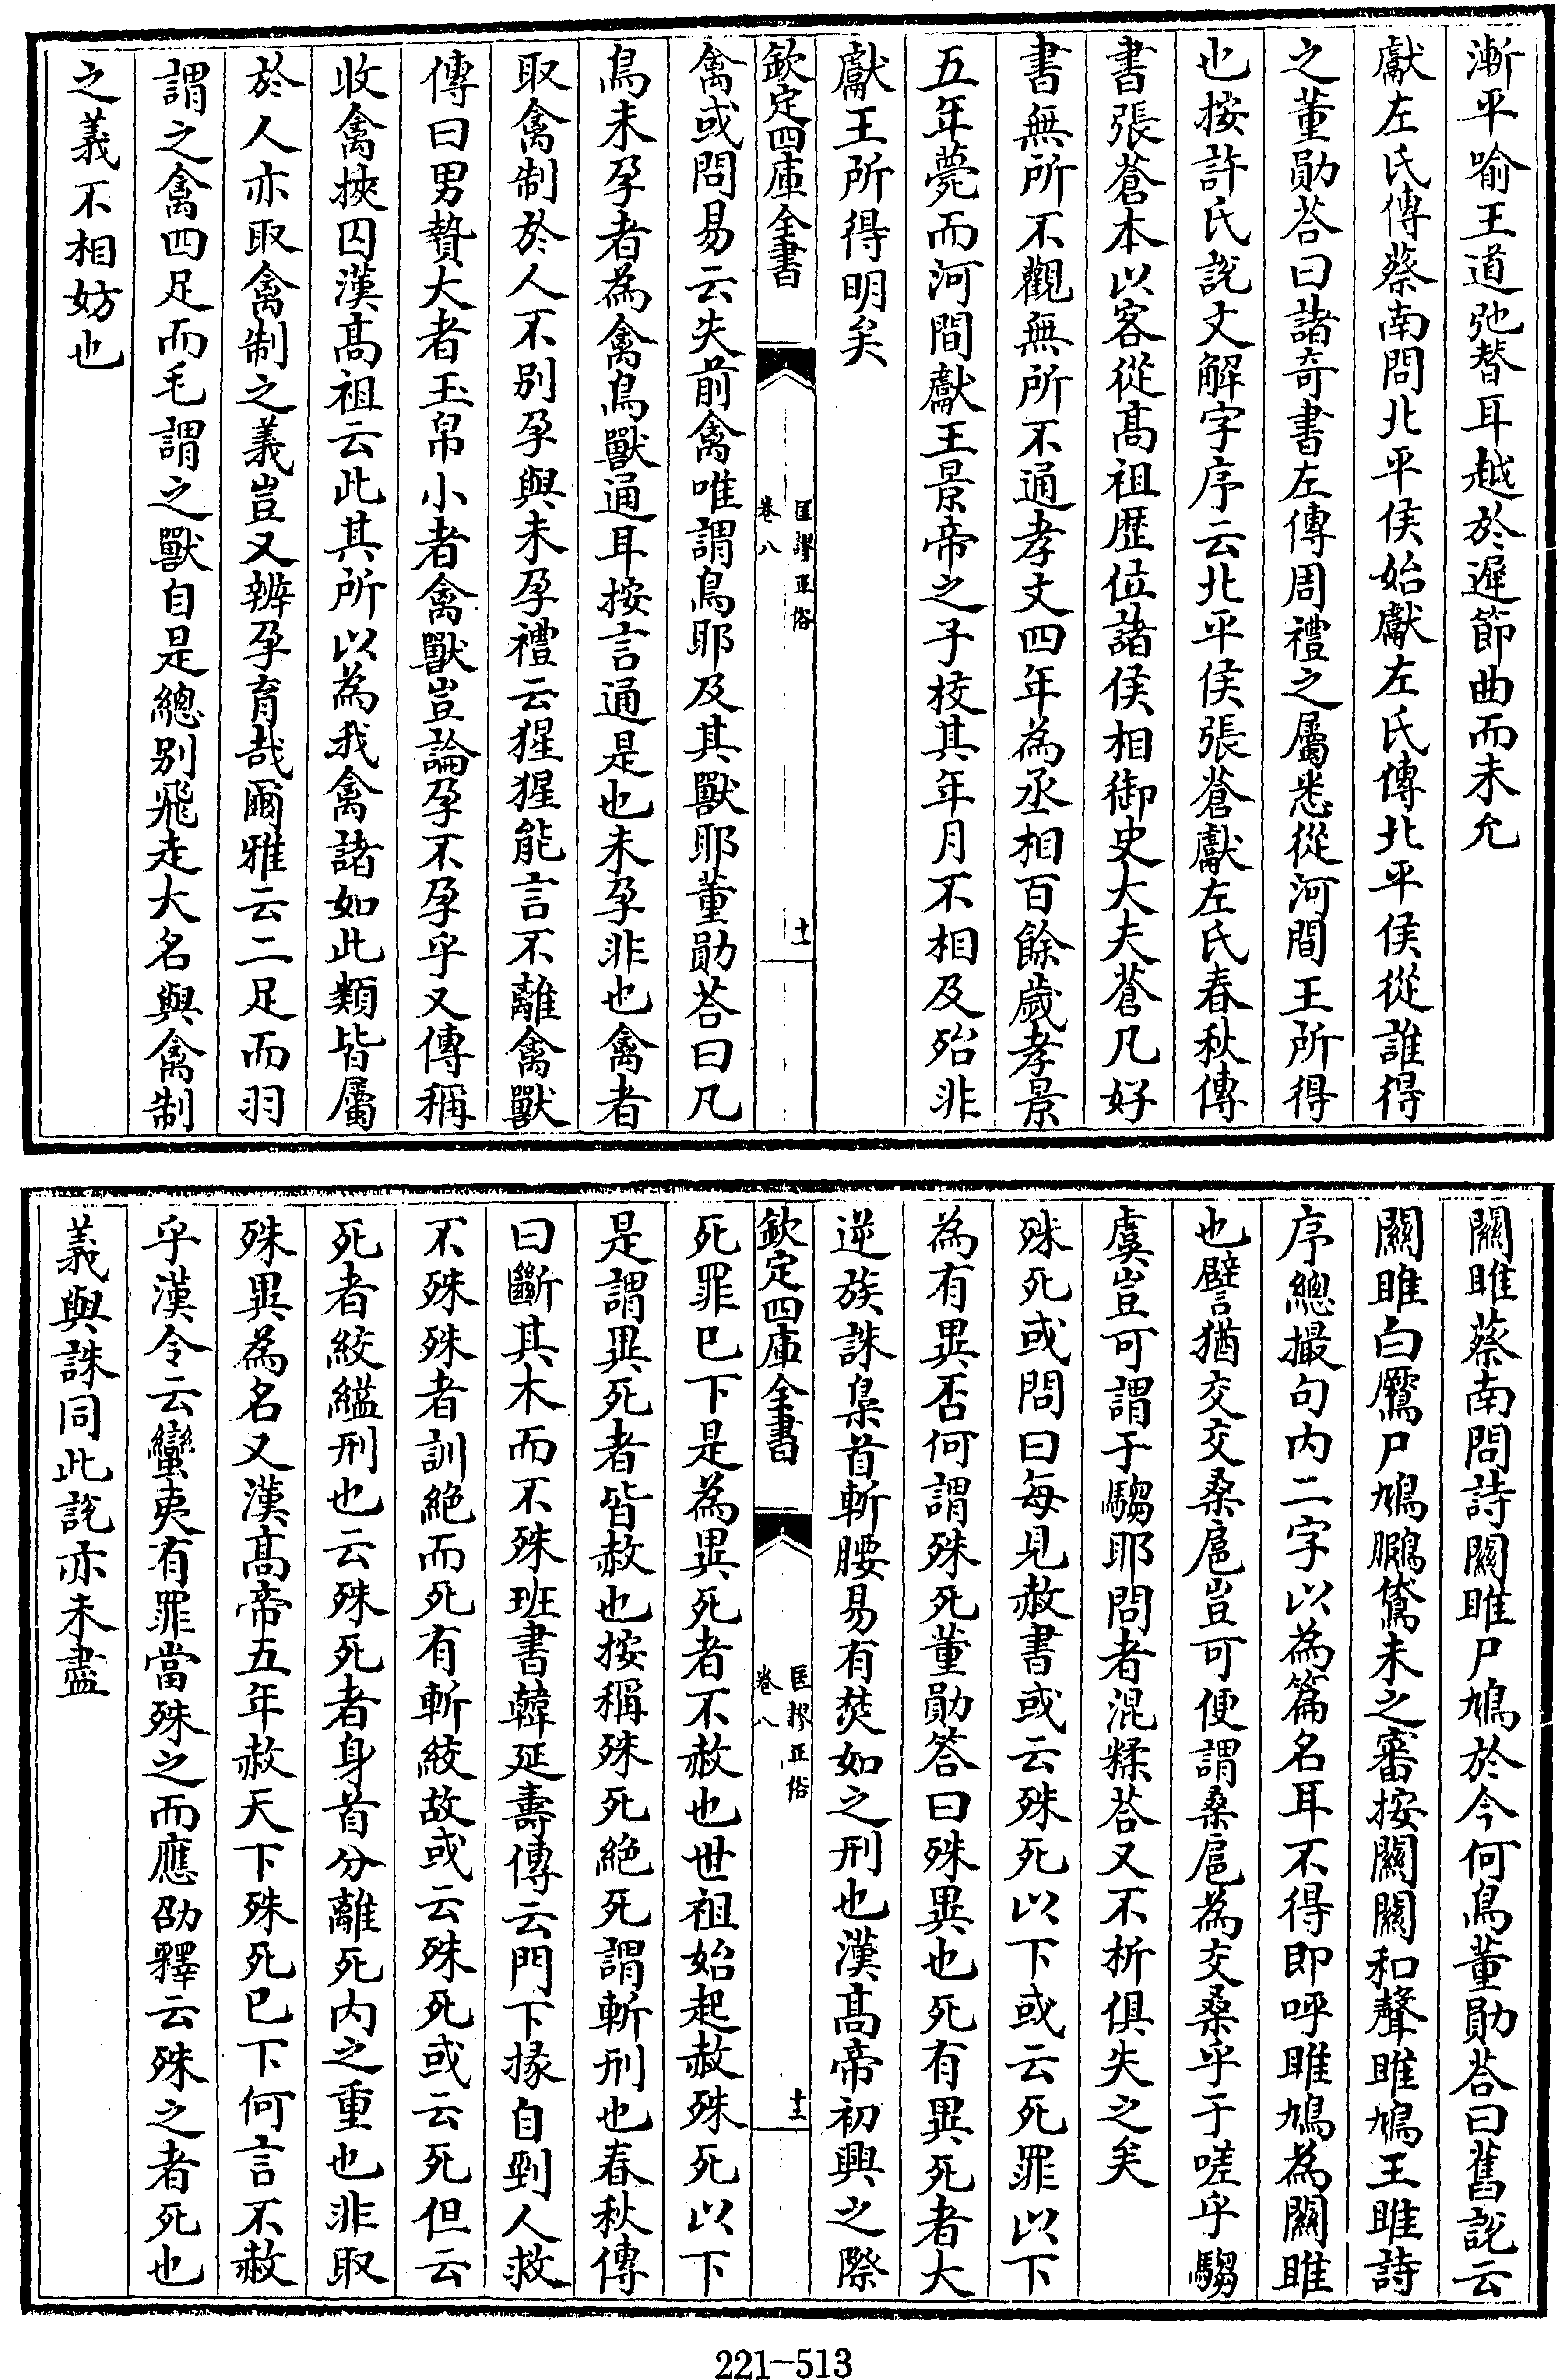 漸平喻王道弛替耳越於遲節曲而未允
獻左氏傳蔡南問北平侯始獻左氏傳北平侯從誰得
之董勛荅曰諸奇書左傳周禮之屬悉從河間王所得
也按許氏說文解字序云北平侯張蒼獻左氏春秋傳
書張蒼本以客從髙祖歴位諸侯相御史大夫蒼凡好
書無所不觀無所不通孝文四年為丞相百餘歲孝景
五年薨而河間獻王景帝之子校其年月不相及殆非
獻王所得明矣
欽定四庫全書
匡謬正俗
卷八
十一
禽或問易云失前禽唯謂鳥耶及其獸耶董勛荅曰凡
鳥未孕者為禽鳥獸通耳按言通是也未孕非也禽者
取禽制於人不别孕與未孕禮云猩猩能言不離禽獸
傳曰男贄大者玉帛小者禽獸豈論孕不孕乎又傳稱
收禽挾囚漢髙祖云此其所以為我禽諸如此類皆屬
於人亦取禽制之義豈又辨孕育哉爾雅云二足而羽
謂之禽四足而毛謂之獸自是總别飛走大名與禽制
之義不相妨也
關雎蔡南問詩關雎尸鳩於今何鳥董勛荅曰舊說云
關雎白鷢尸鳩鶥鵀未之審按關關和聲雎鳩王雎詩
序總撮句内二字以為篇名耳不得即呼雎鳩為關雎
也譬猶交交桑扈豈可便謂桑扈為交桑乎于嗟乎騶
虞豈可謂于騶耶問者混糅荅又不析俱失之矣
殊死或問曰每見赦書或云殊死以下或云死罪以下
為有異否何謂殊死董勛答曰殊異也死有異死者大
逆族誅梟首斬腰易有焚如之刑也漢髙帝初興之際
欽定四庫全書
匡謬正俗
卷八
十二
死罪巳下是為異死者不赦也世祖始起赦殊死以下
是謂異死者皆赦也按稱殊死絶死謂斬刑也春秋傳
曰斷其木而不殊班書韓延壽傳云門下掾自剄人救
不殊殊者訓絶而死有斬絞故或云殊死或云死但云
死者絞縊刑也云殊死者身首分離死内之重也非取
殊異為名又漢髙帝五年赦天下殊死巳下何言不赦
乎漢令云蠻夷有罪當殊之而應劭釋云殊之者死也
義與誅同此說亦未盡
221-513